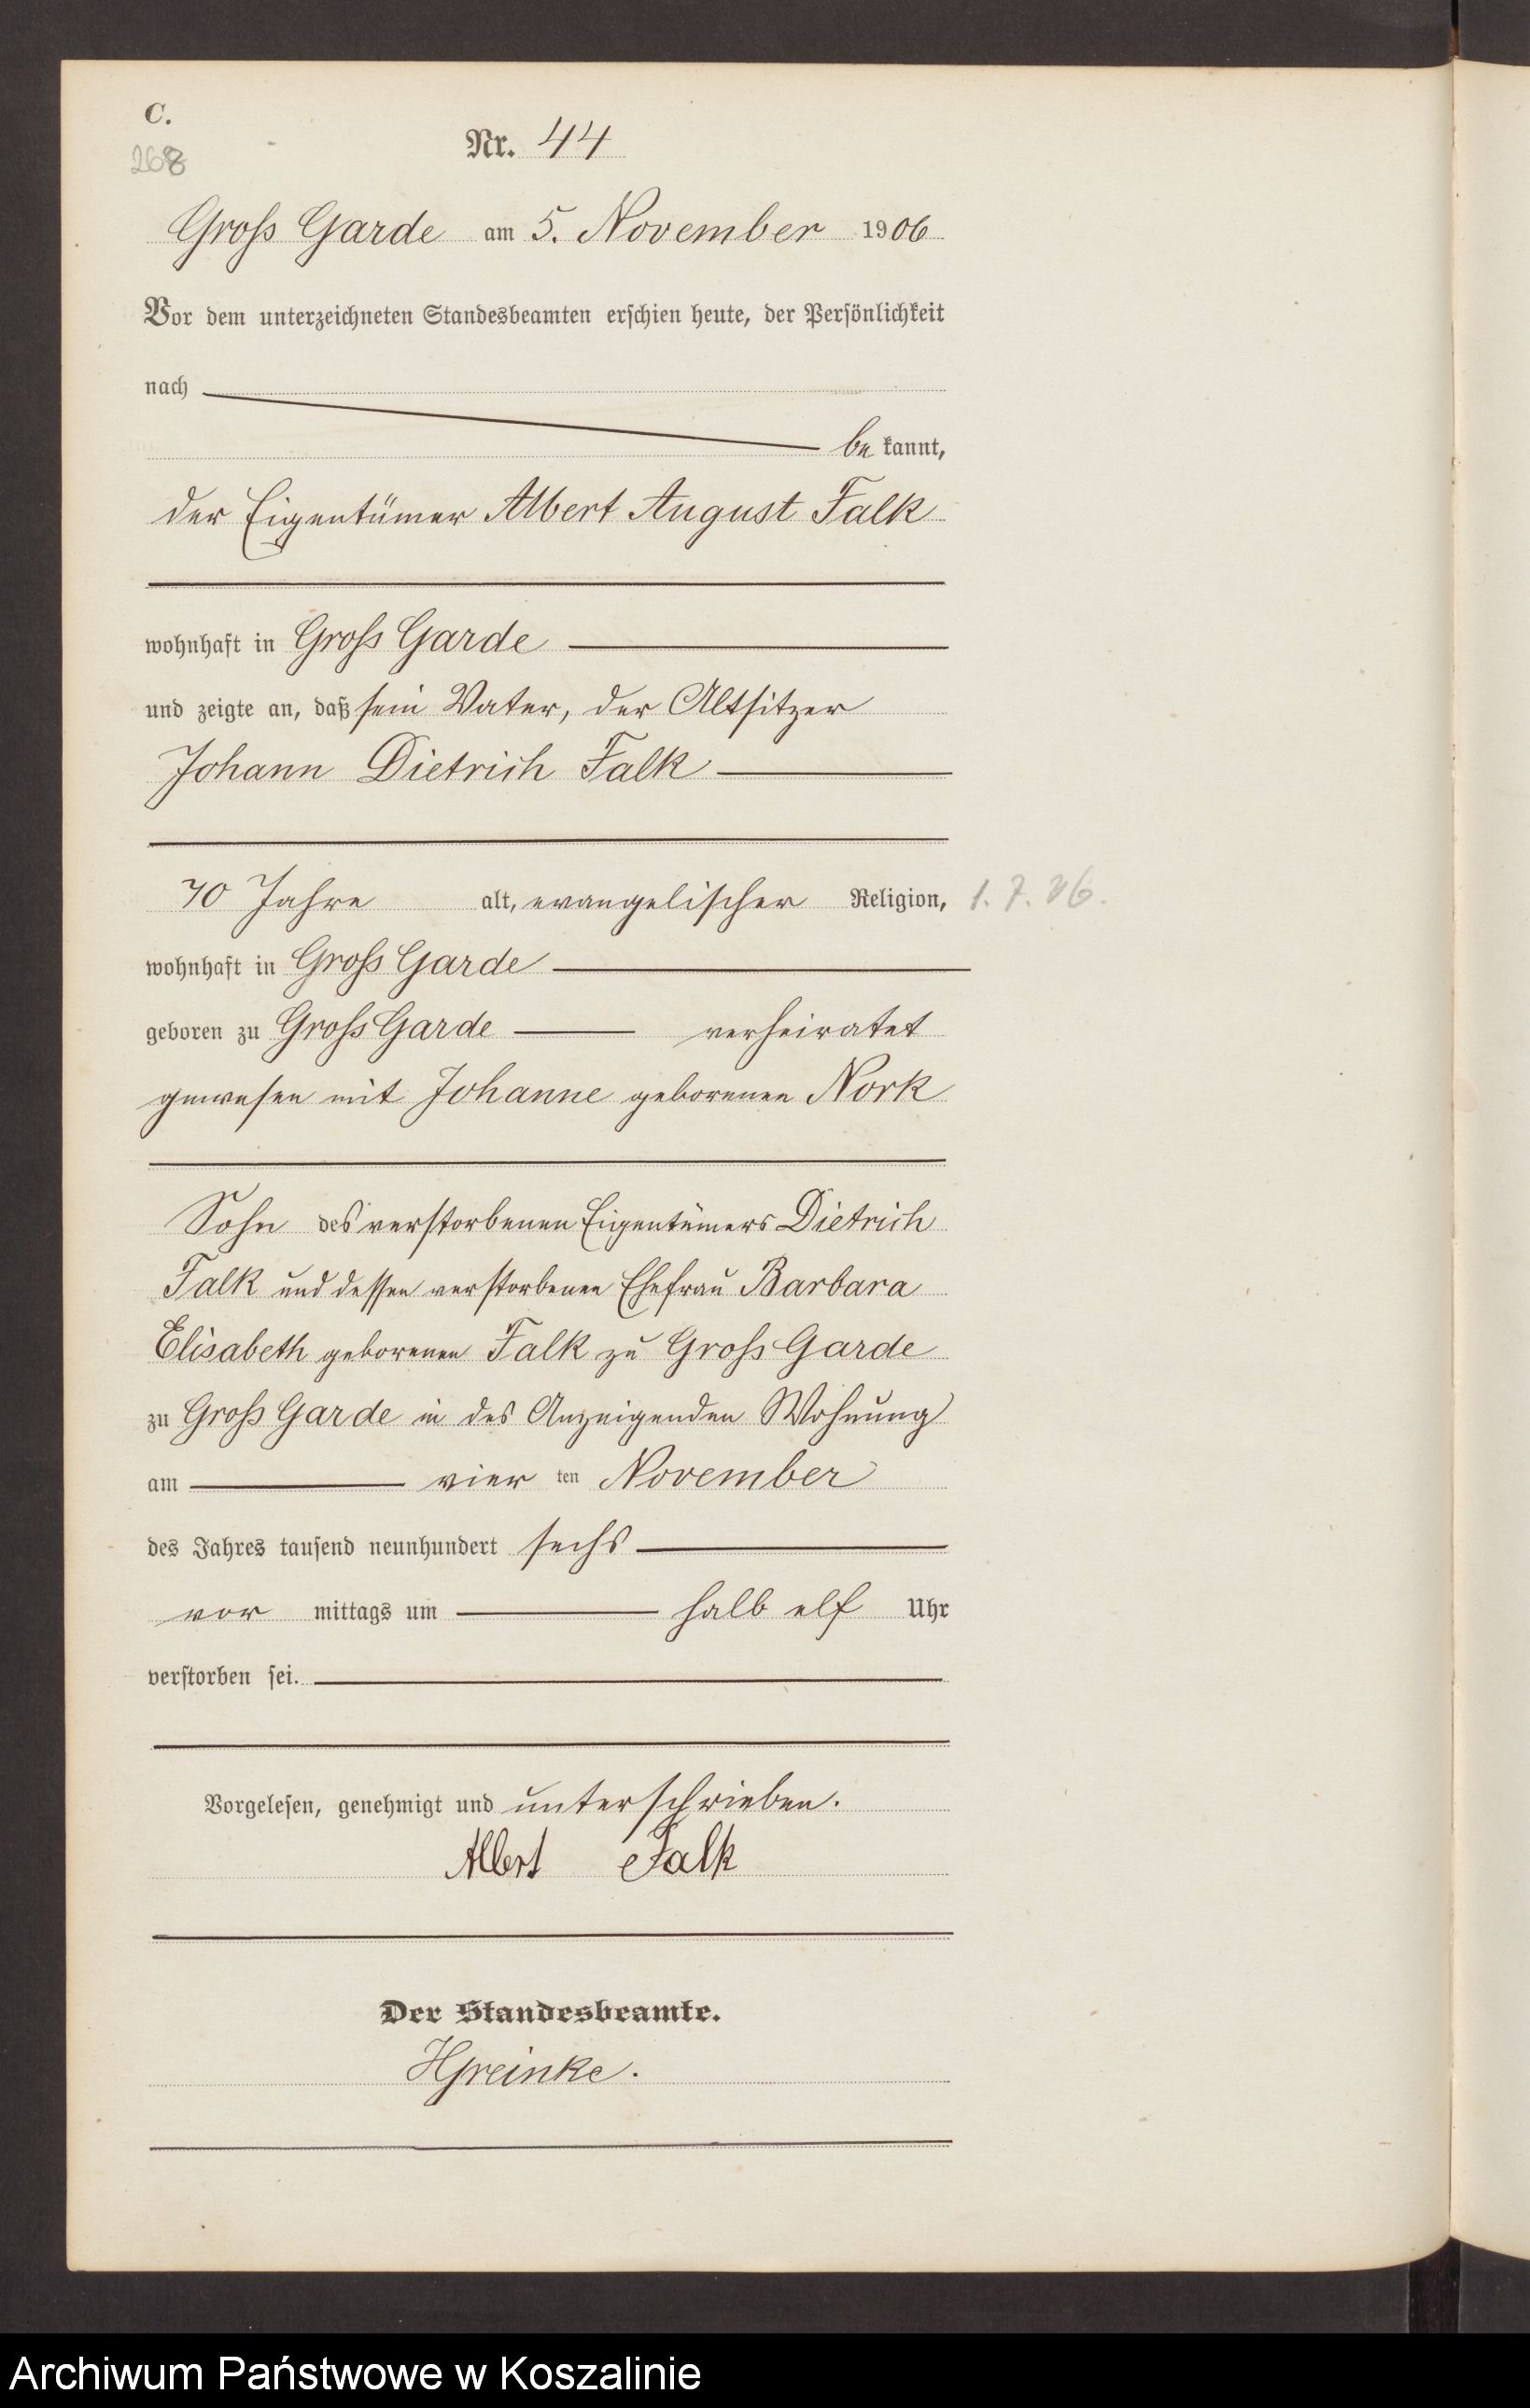 C.
268
Nr. 44
Gross Garde am 5. November 1906
Vor dem unterzeichneten Standesbeamten erschien heute, der Persönlichkeit
nach
be kannt,
der Eigentümer Albert August Falk
wohnhaft in Gross Garde
und zeigte an, daß sein Vater, der Altsitzer
Johann Dietrich Falk
70 Jahre alt, evangelischer Religion, 1. 7. 36.
wohnhaft in Gross Garde
geboren zu Gross Garde verheiratet
gewesen mit Johanne geborenen Nork
Sohn des verstorbenen Eigentümers Dietrich
Falk und dessen verstorbenen Ehefrau Barbara
Elisabeth geborenen Falk zu Gross Garde
zu Gross Garde in des Anzeigenden Wohnung
am vier ten November
des Jahres tausend neunhundert sechs
vor mittags um halb elf Uhr
verstorben sei.
Vorgelesen, genehmigt und unterschrieben.
Albert Falk
Der Standesbeamte.
Archiwum Państwowe w Koszalinie